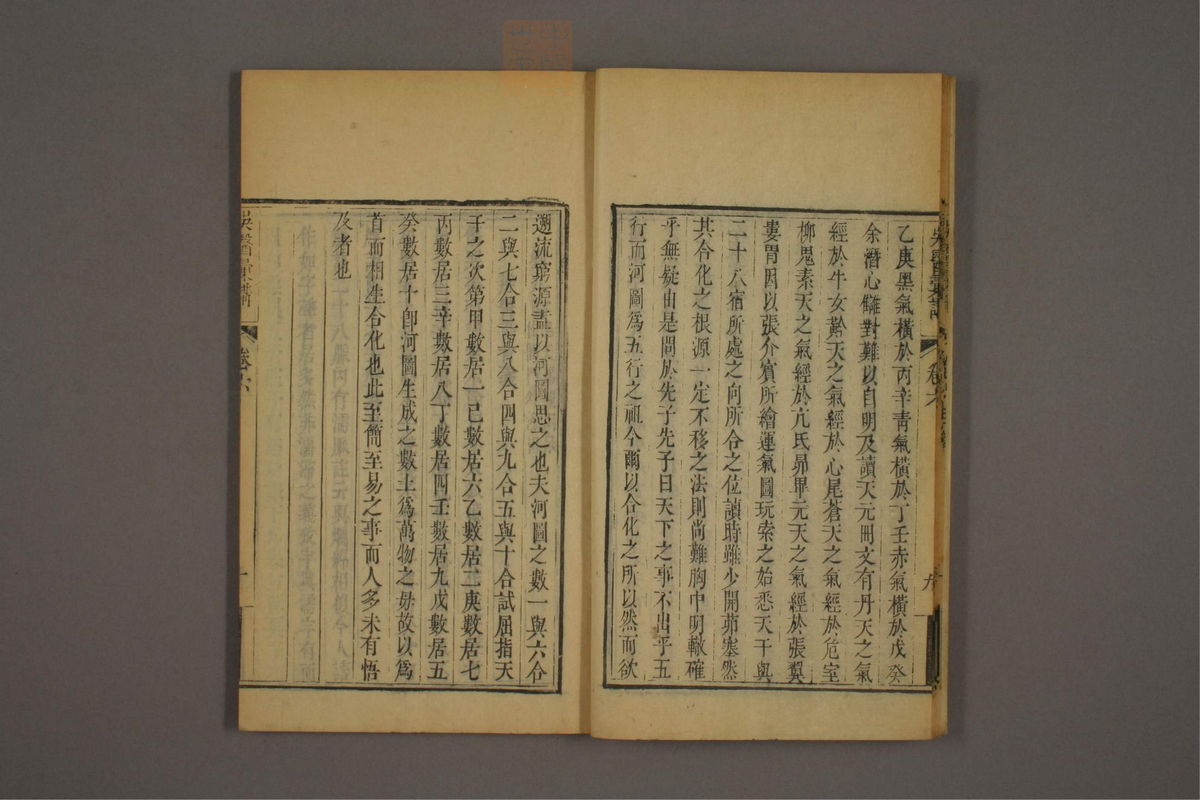 乙庚黑氣橫於丙辛青氣橫於丁壬赤氣橫於戊癸
余潛心讎對難以自明及讀天元冊文有丹天之氣
經於牛女黅天之氣經於心尾蒼天之氣經於危室
柳鬼素天之氣經於亢氐昴畢元天之氣經於張翼
婁胃因以張介賓所繪運氣圖玩索之始悉天干與
二十八宿所處之向所合之位讀時雖少開茆塞然
其合化之根源一定不移之法則尚難胸中明轍確
乎無疑由是問於先子先子曰天下之事不出乎五
行而河圖為五行之祖今爾以合化之所以然而欲
遡流窮源盍以河圖思之也夫河圖之數一與六合
二與七合三與八合四與九合五與十合試屈指天
干之次第甲數居一己數居六乙數居二庚數居七
丙數居三辛數居八丁數居四壬數居九戊數居五
癸數居十即河圖生成之數土為萬物之母故以為
首而相生合化也此至簡至易之事而人多未有悟
及者也
吳醫彙講
卷六